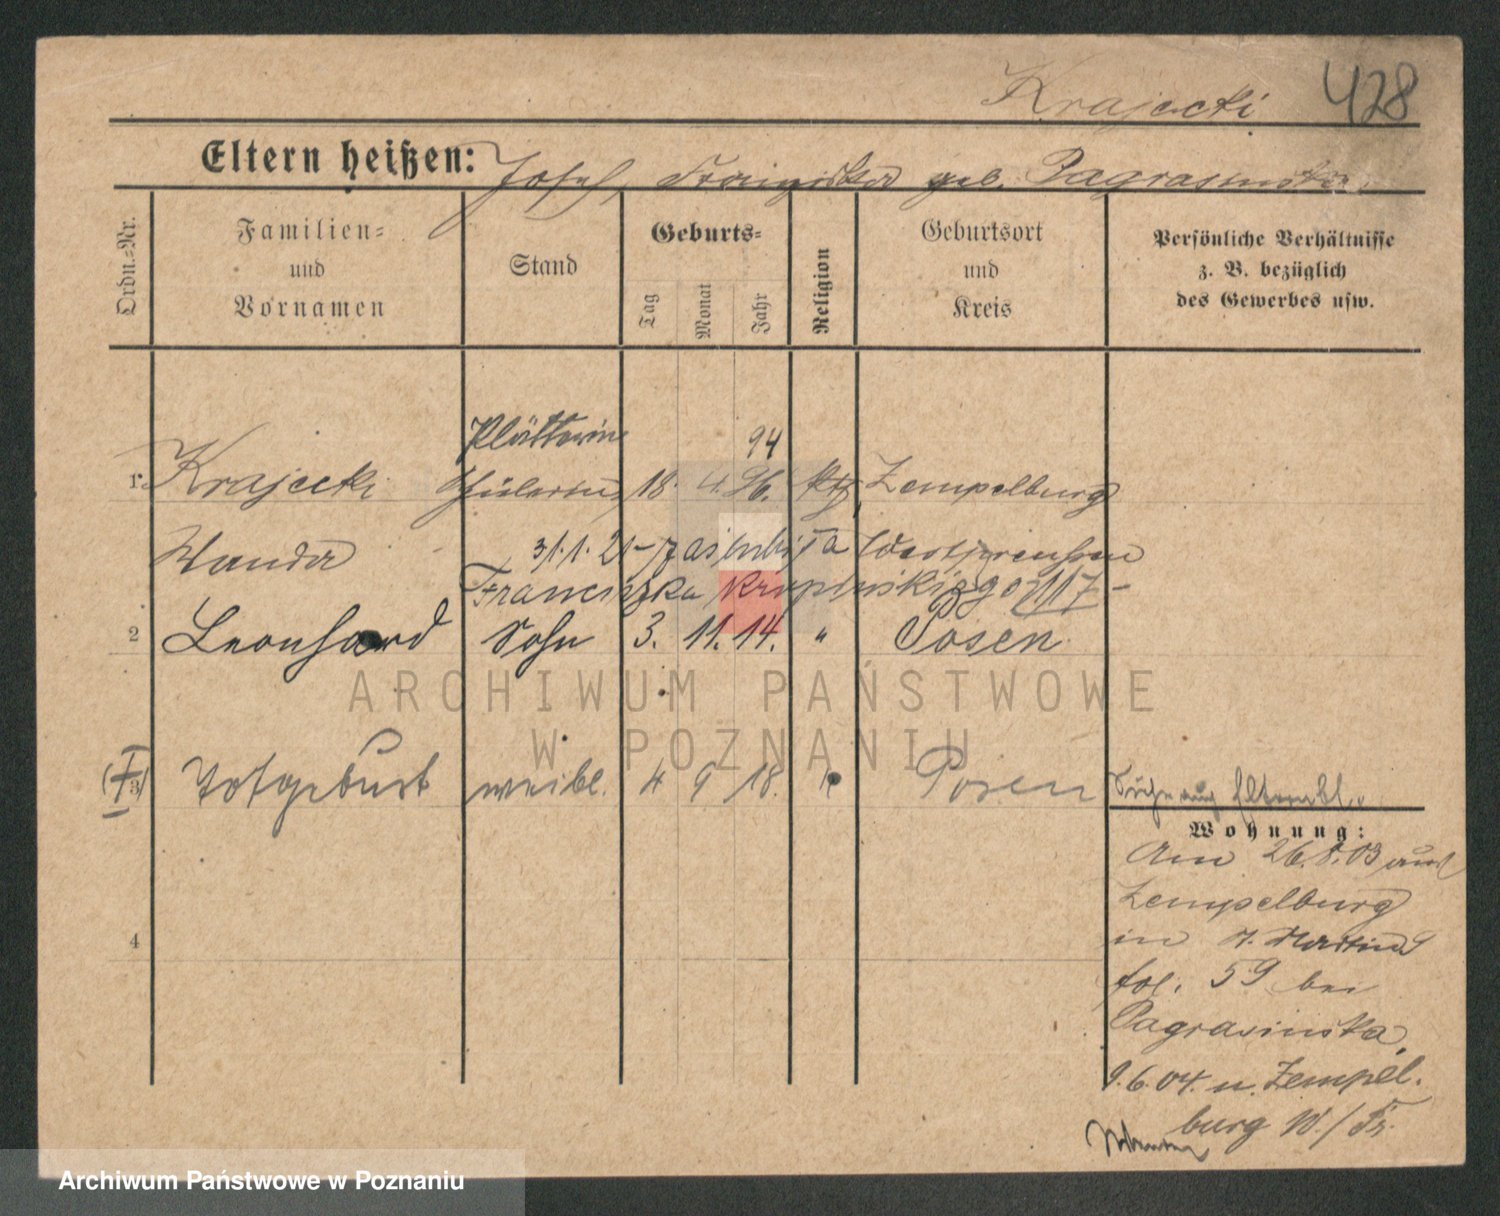 Krajecki 428
Eltern heißen: Josef, Franziska geb. Pagrasinska.
Ordn.-Nr.
Familien-
und
Vornamen
Stand
Geburts-
Tag
Monat
Jahr
Religion
Geburtsort
und
Kreis
Persönliche Verhältnisse
z. B. bezüglich
des Gewerbes usw.
Plätterin 94
1. Krajecki Schülerin 18. 4. 96. kth. Zempelburg
Wanda Westpreußen
31.1.21 – zaślubiła
Franciszka
2 Leonhard Sohn 3. 11. 14. " Posen
(†3) Totgeburt weibl. 4 9 18. " Posen
Siehe auch Elternbl.
Wohnung:
Am 26.8.03 aus
Zempelburg
in St. Martin
4
fol. 59 bei
Pagrasinska,
9.6.04. n. Zempel-
burg W./Pr.
ARCHIWUM PAŃSTWOWE
W POZNANIU
Archiwum Państwowe w Poznaniu